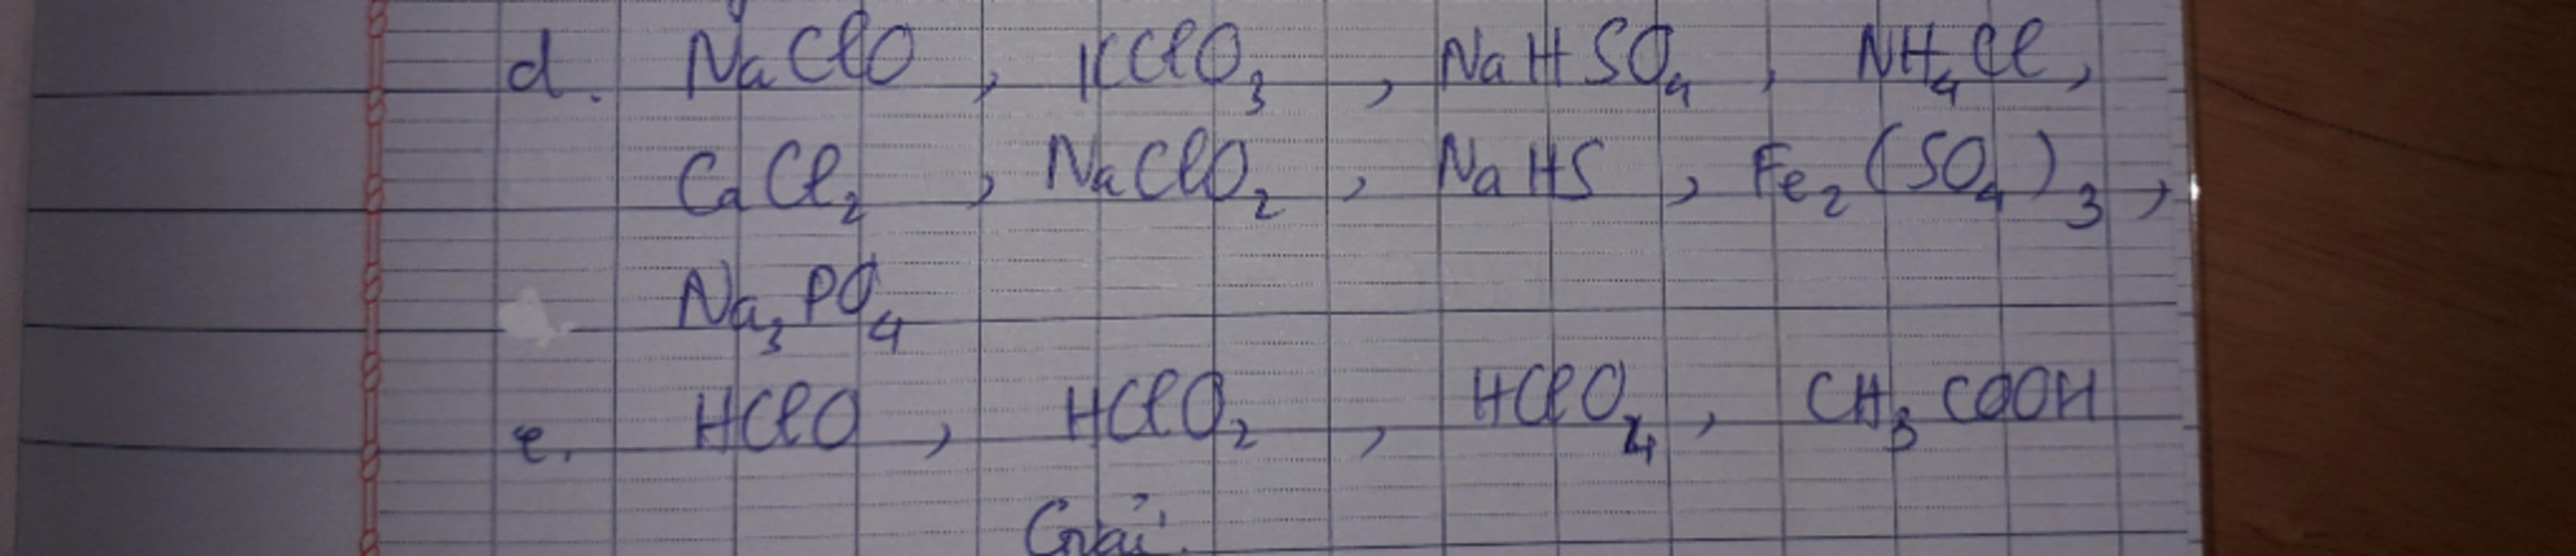 d. NaClO , KClO₃ , NaHSO₄ , NH₄Cl,
CaCl₂ , NaClO₂ , NaHS , Fe₂(SO₄)₃ ,
Na₃PO₄
e. HClO , HClO₂ , HClO₄ , CH₃COOH
Giải